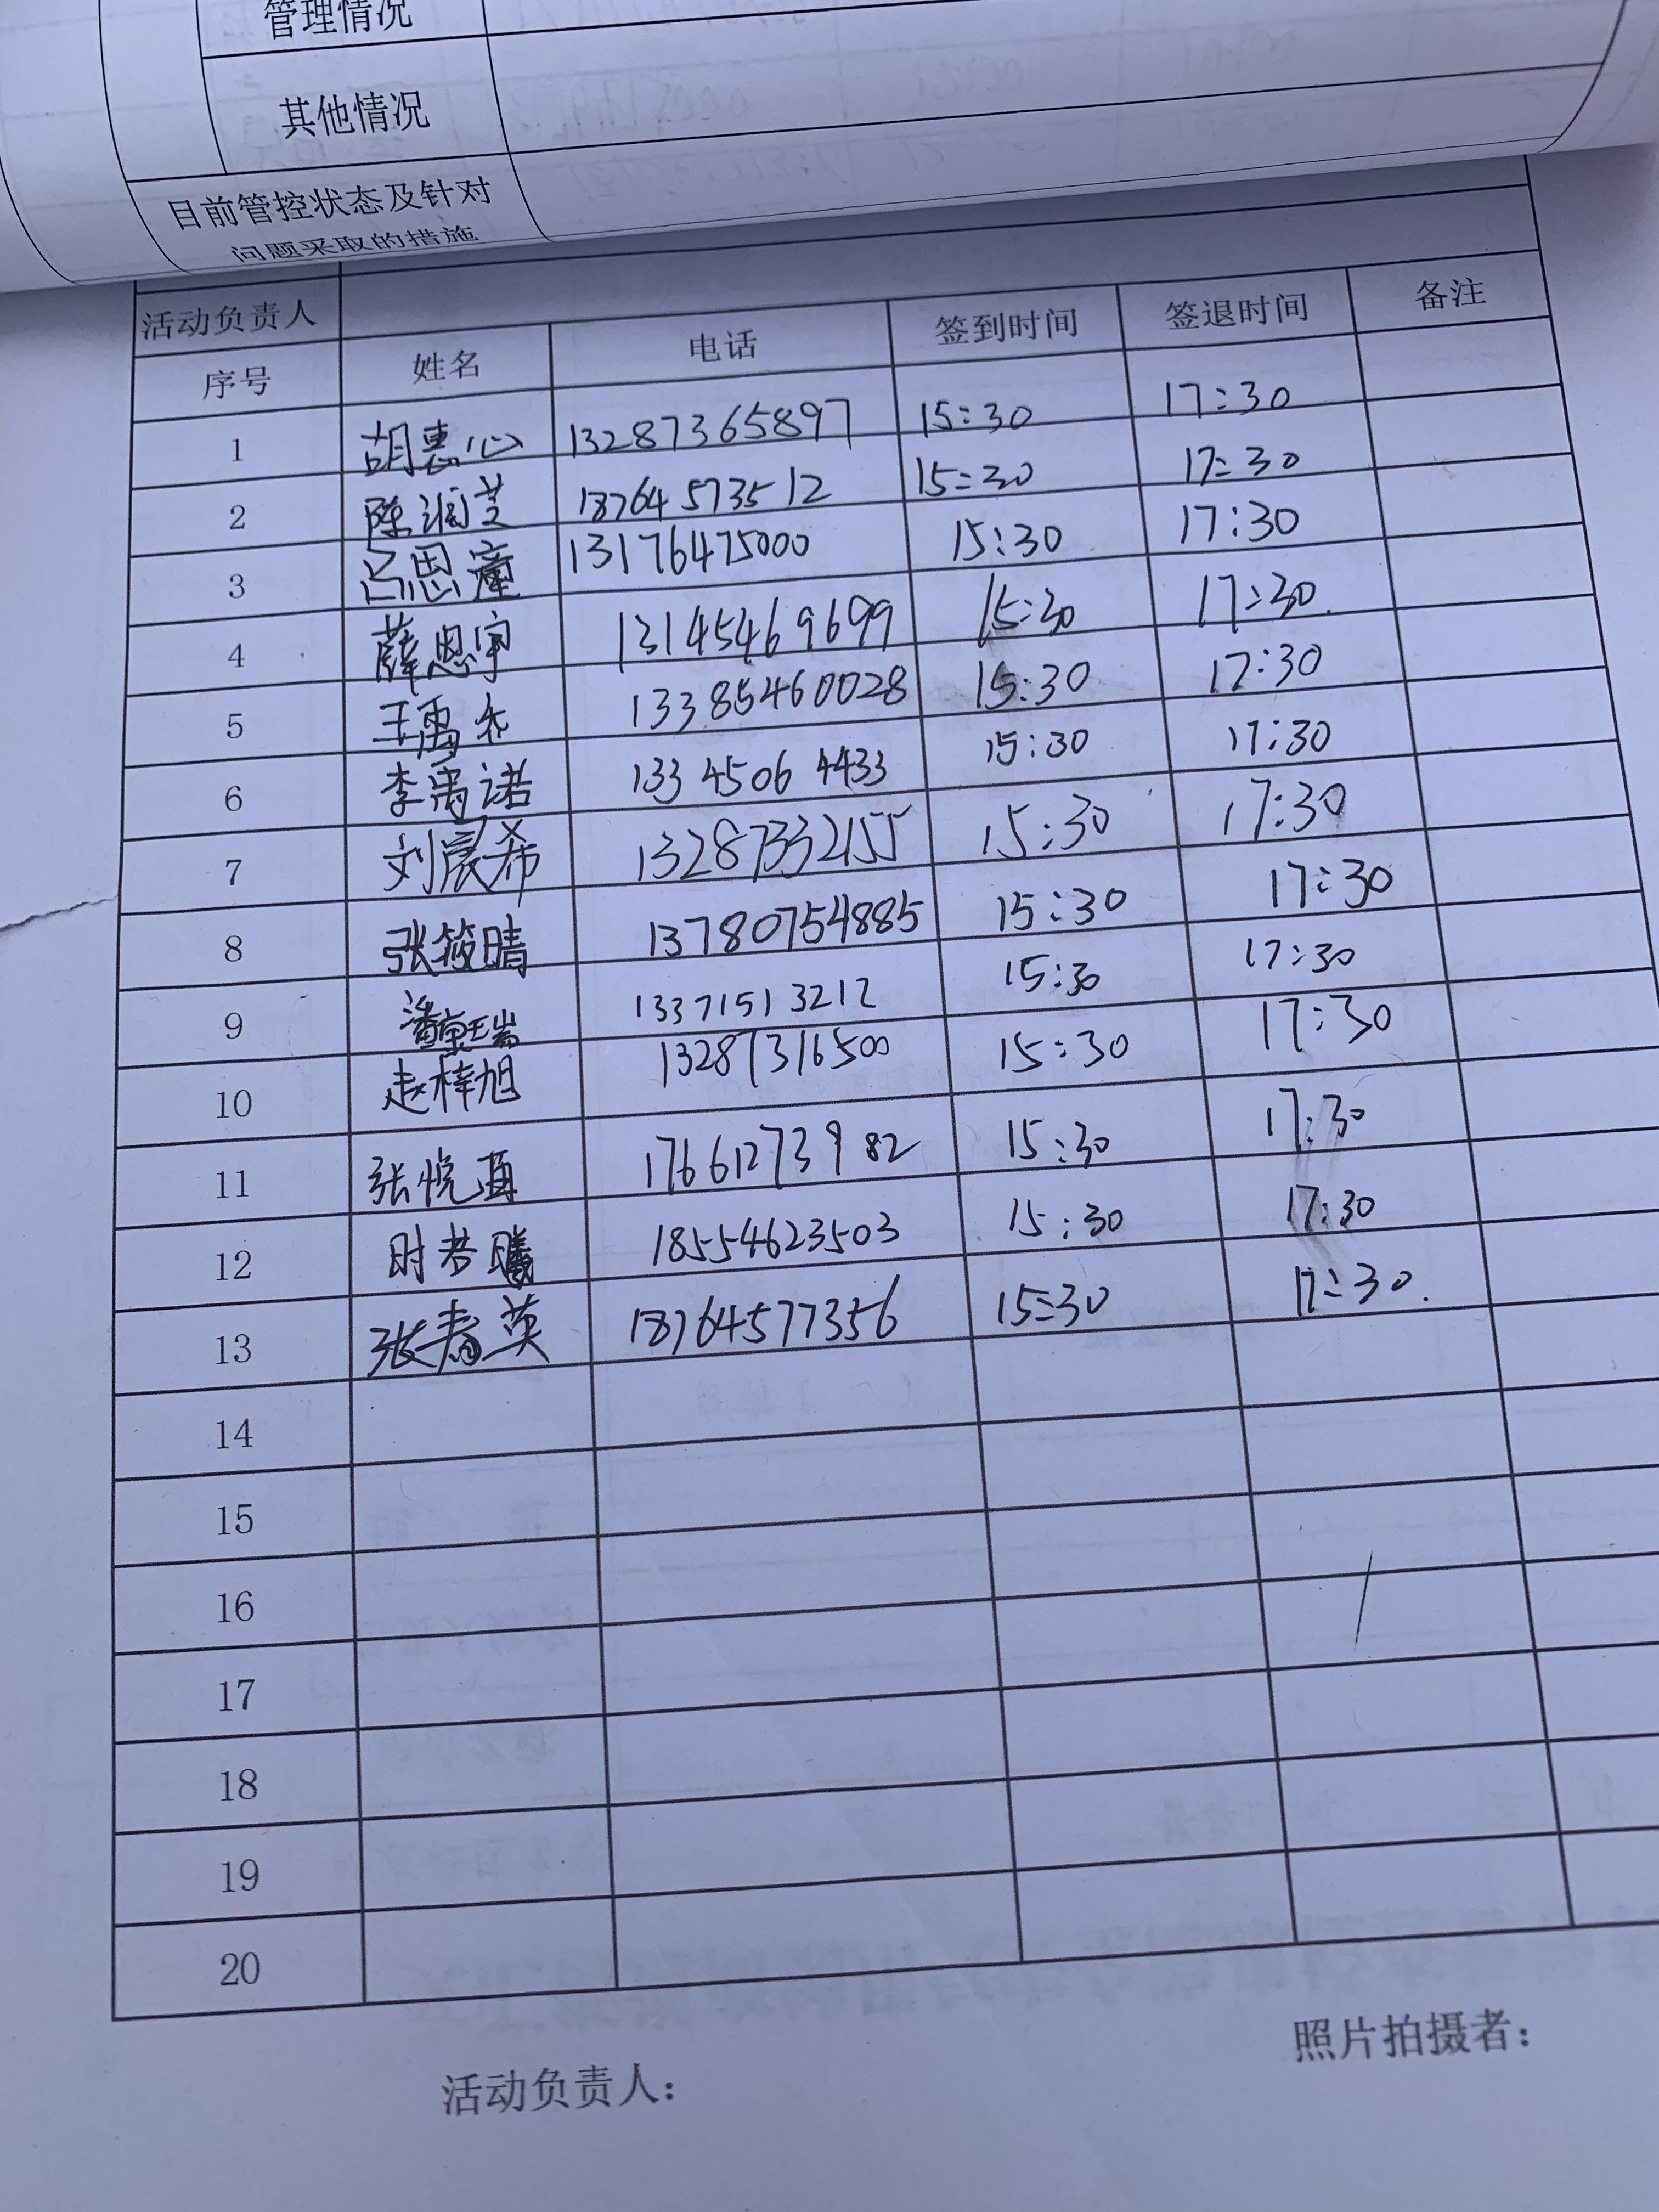 管理情况
其他情况
目前管控状态及针对
问题采取的措施
活动负责人
序号 姓名 电话 签到时间 签退时间 备注
1 胡惠心 13287365897 15:30 17:30
2 陈润芝 18764573512 15:30 17:30
3 吕思童 13176475000 15:30 17:30
4 薛思宇 13145469699 15:30 17:30
5 王禹 13385460028 15:30 17:30
6 李禹诺 13345064433 15:30 17:30
7 刘宸希 13287332155 15:30 17:30
8 张筱晴 13780754885 15:30 17:30
9 潘童瑞 13371513212 15:30 17:30
10 赵梓旭 13287316500 15:30 17:30
11 张悦 17661273982 15:30 17:30
12 时若曦 18554623503 15:30 17:30
13 张春英 18764577356 15:30 17:30
14
15
16
17
18
19
20
活动负责人： 照片拍摄者：